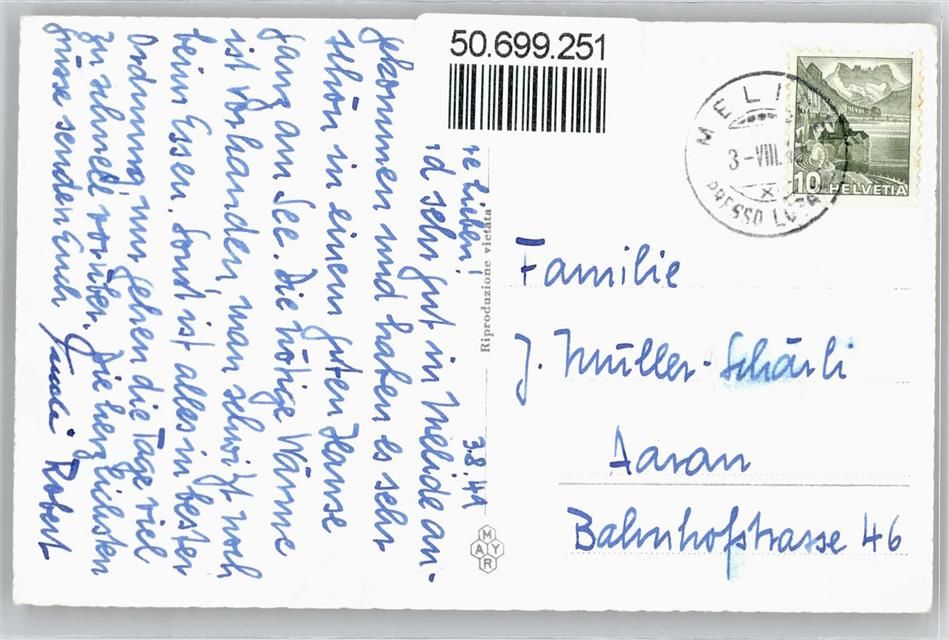 50.699.251
MELI
3-VIII.
PRESSO LUGA
10 HELVETIA
3.8.41
re Lieben!
d sehr gut in Melide an-
gekommen und haben es sehr
schön in einem guten Hause
ganz am See. Die nötige Wärme
ist vorhanden, man schwitzt noch
beim Essen. Sonst ist alles in bester
Ordnung, nur gehen die Tage viel
zu schnell vorüber. Die herzlichsten
Grüsse senden Euch
Robert
Riproduzione vietata
MAYR
Familie
J. Müller-Schärli
Aarau
Bahnhofstrasse 46